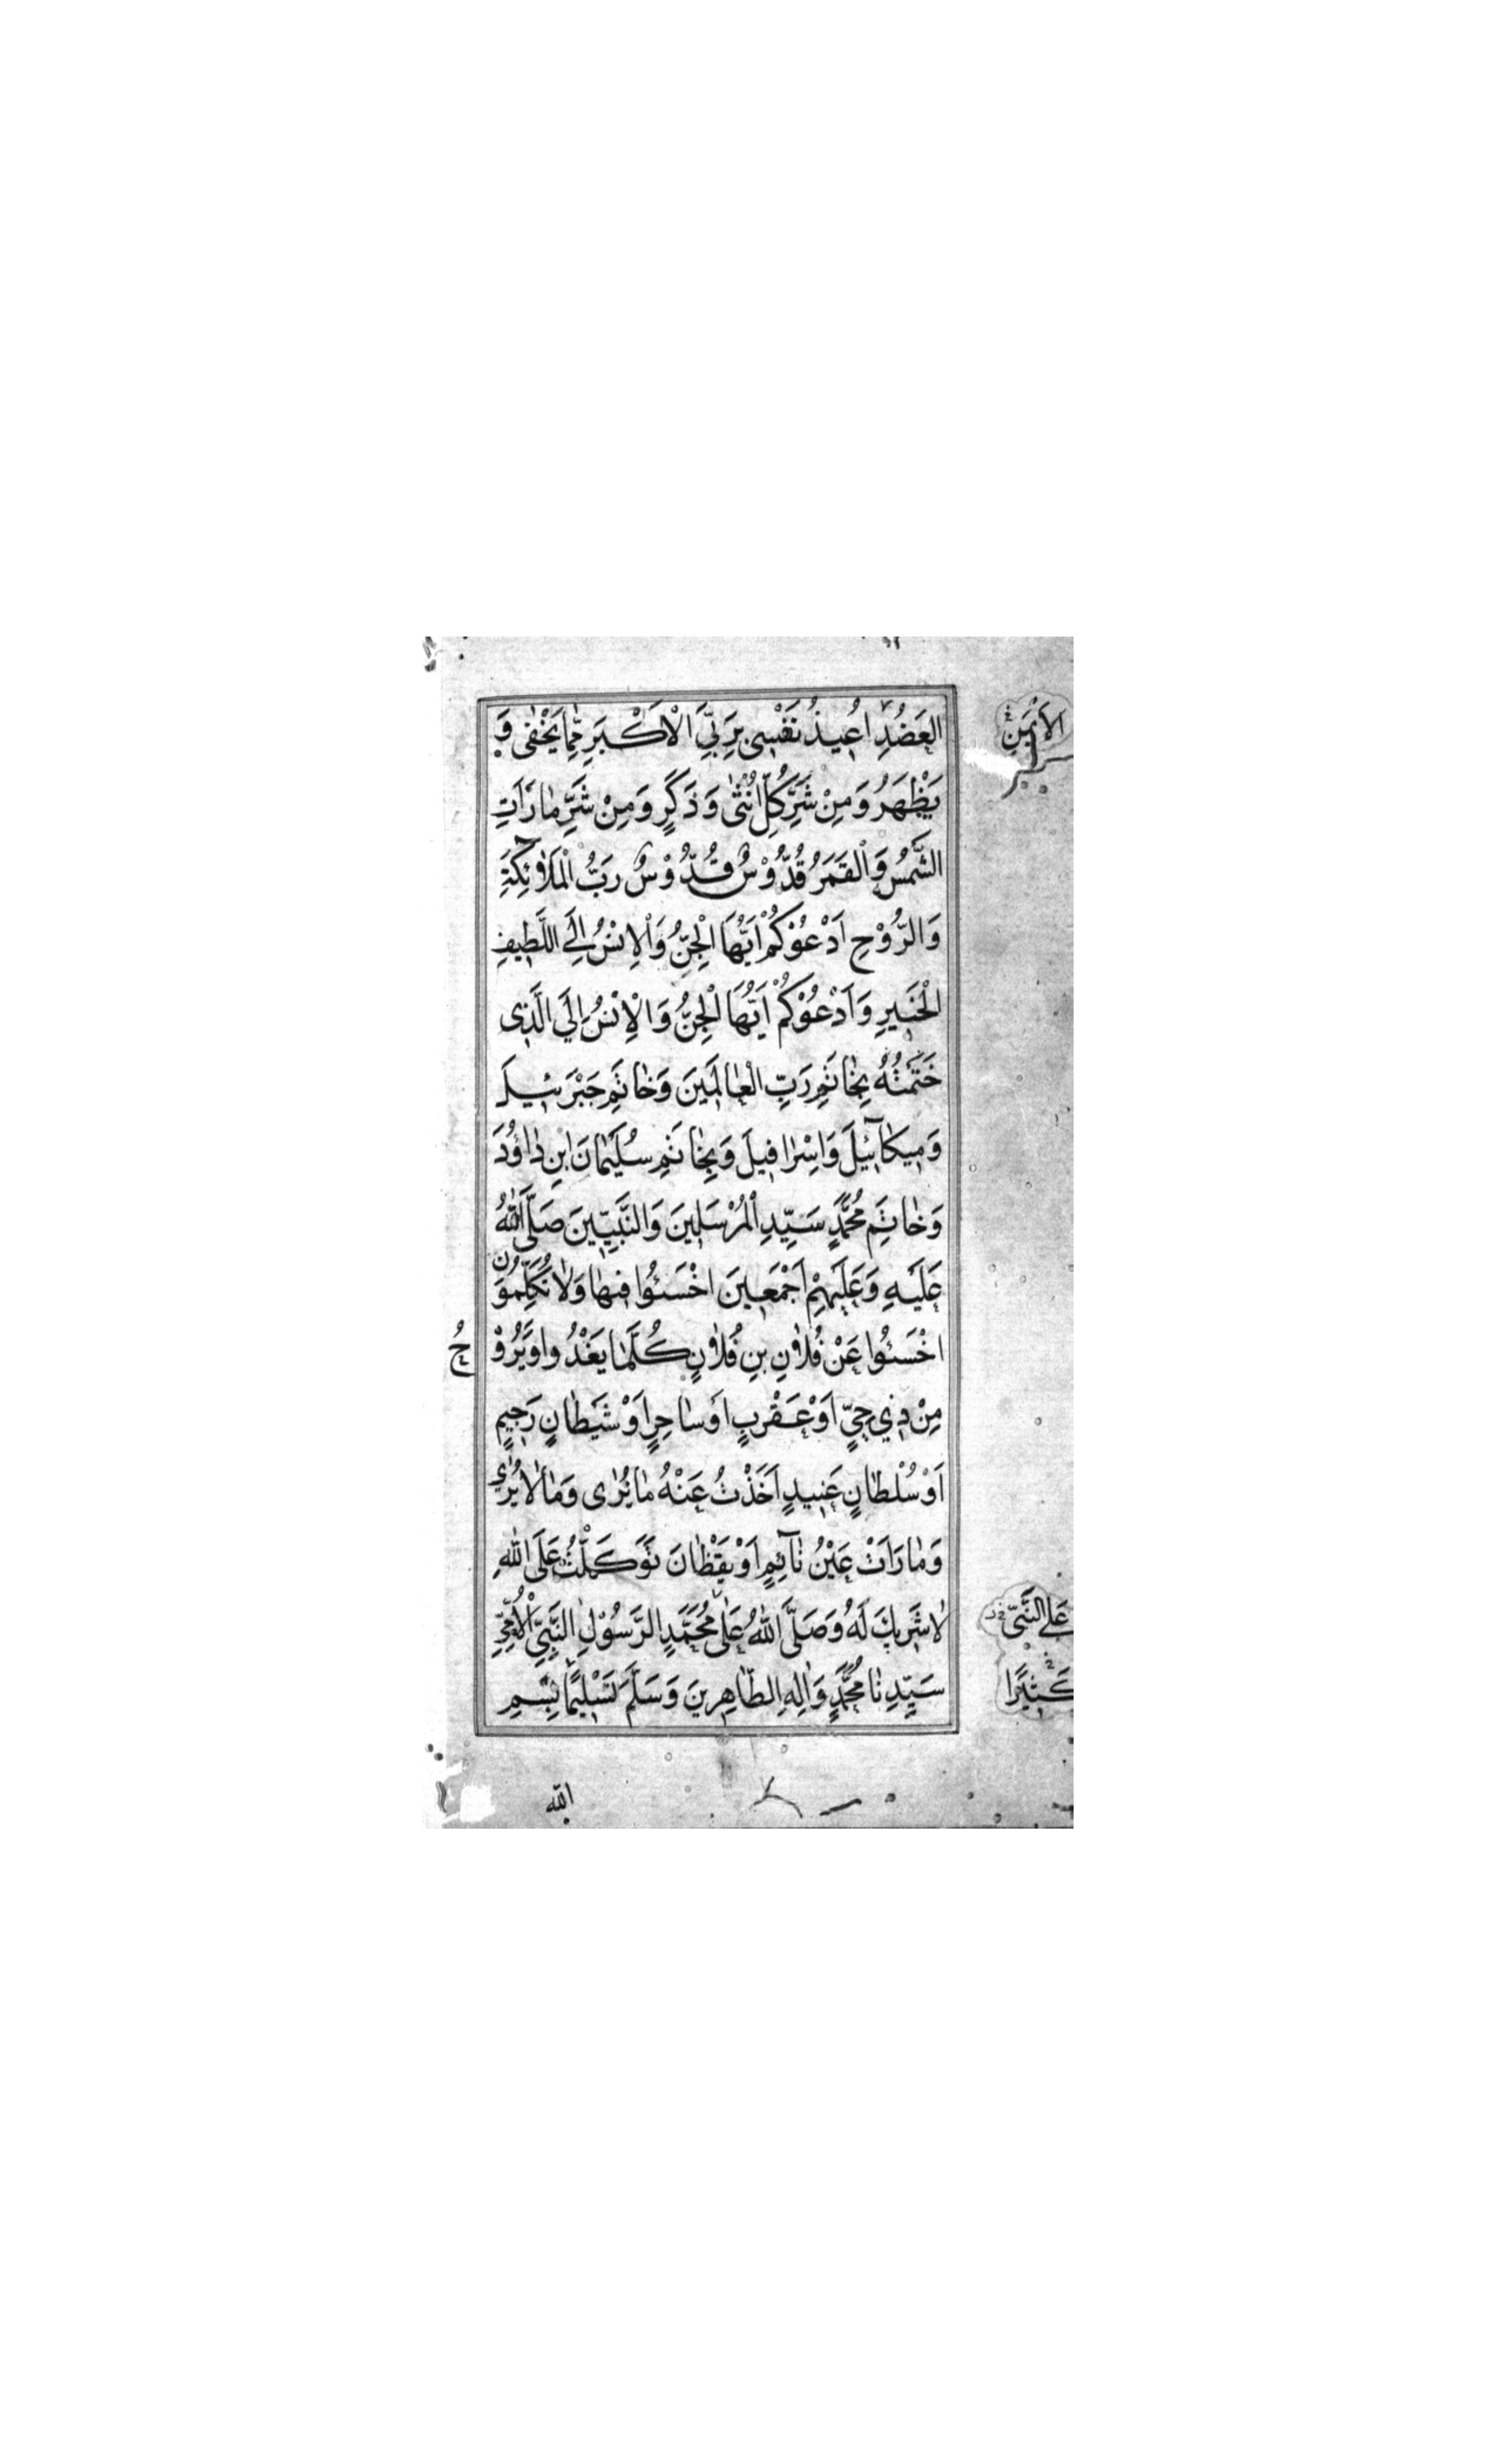 الاَيْمَنِ
العَضُدِ اُعِيذُ نَفْسِى بِرَبِّىَ الْاَكْبَرِ مِمّٰا يَخْفٰى وَ
يَظْهَرُ وَمِنْ شَرِّ كُلِّ اُنْثٰى وَ ذَكَرٍ وَمِنْ شَرِّ مٰا رَاَتِ
الشَّمْسُ وَالْقَمَرُ قُدُّوْسٌ قُدُّوْسٌ رَبُّ الْمَلاٰئِكَةِ
وَالرُّوْحِ اَدْعُوْكُمْ اَيُّهَا الْجِنُّ وَالْاِنْسُ اِلَى اللَّطِيفِ
الْخَبِيرِ وَاَدْعُوْكُمْ اَيُّهَا الْجِنُّ وَالْاِنْسُ اِلَى الَّذِى
خَتَمْتُهُ بِخٰاتَمِ رَبِّ الْعٰالَمِينَ وَخٰاتَمِ جَبْرَئِيلَ
وَمِيكٰآئِيلَ وَاِسْرٰافِيلَ وَبِخٰاتَمِ سُلَيْمٰانَ ابْنِ دٰاوُدَ
وَخٰاتَمِ مُحَمَّدٍ سَيِّدِ الْمُرْسَلِينَ وَالنَّبِيّٖينَ صَلَّى اللّٰهُ
عَلَيْهِ وَعَلَيْهِمْ اَجْمَعِينَ اخْسَئُوا فِيهٰا وَلاٰ تُكَلِّمُونَ
اخْسَئُوا عَنْ فُلاٰنِ بْنِ فُلاٰنٍ كُلَّمٰا يَغْدُوا وَيَرُوْحُ
مِنْ ذِي حَيٍّ اَوْ عَقْرَبٍ اَوْ سٰاحِرٍ اَوْ شَيْطٰانٍ رَجِيمٍ
اَوْ سُلْطٰانٍ عَنِيدٍ اَخَذْتُ عَنْهُ مٰا يُرٰى وَمٰا لاٰ يُرٰى
وَمٰا رَاَتْ عَيْنُ نٰآئِمٍ اَوْ يَقْظٰانَ تَوَكَّلْتُ عَلَى اللّٰهِ
لاٰ شَرِيكَ لَهُ وَصَلَّى اللّٰهُ عَلٰى مُحَمَّدٍ الرَّسُوْلِ النَّبِىِّ الْاُمِّىِّ
عَلَى النَّبِىِّ
سَيِّدِنٰا مُحَمَّدٍ وَاٰلِهِ الطّٰاهِرِينَ وَسَلَّمَ تَسْلِيمًا بِسْمِ
كَثِيرًا
اللّٰهِ